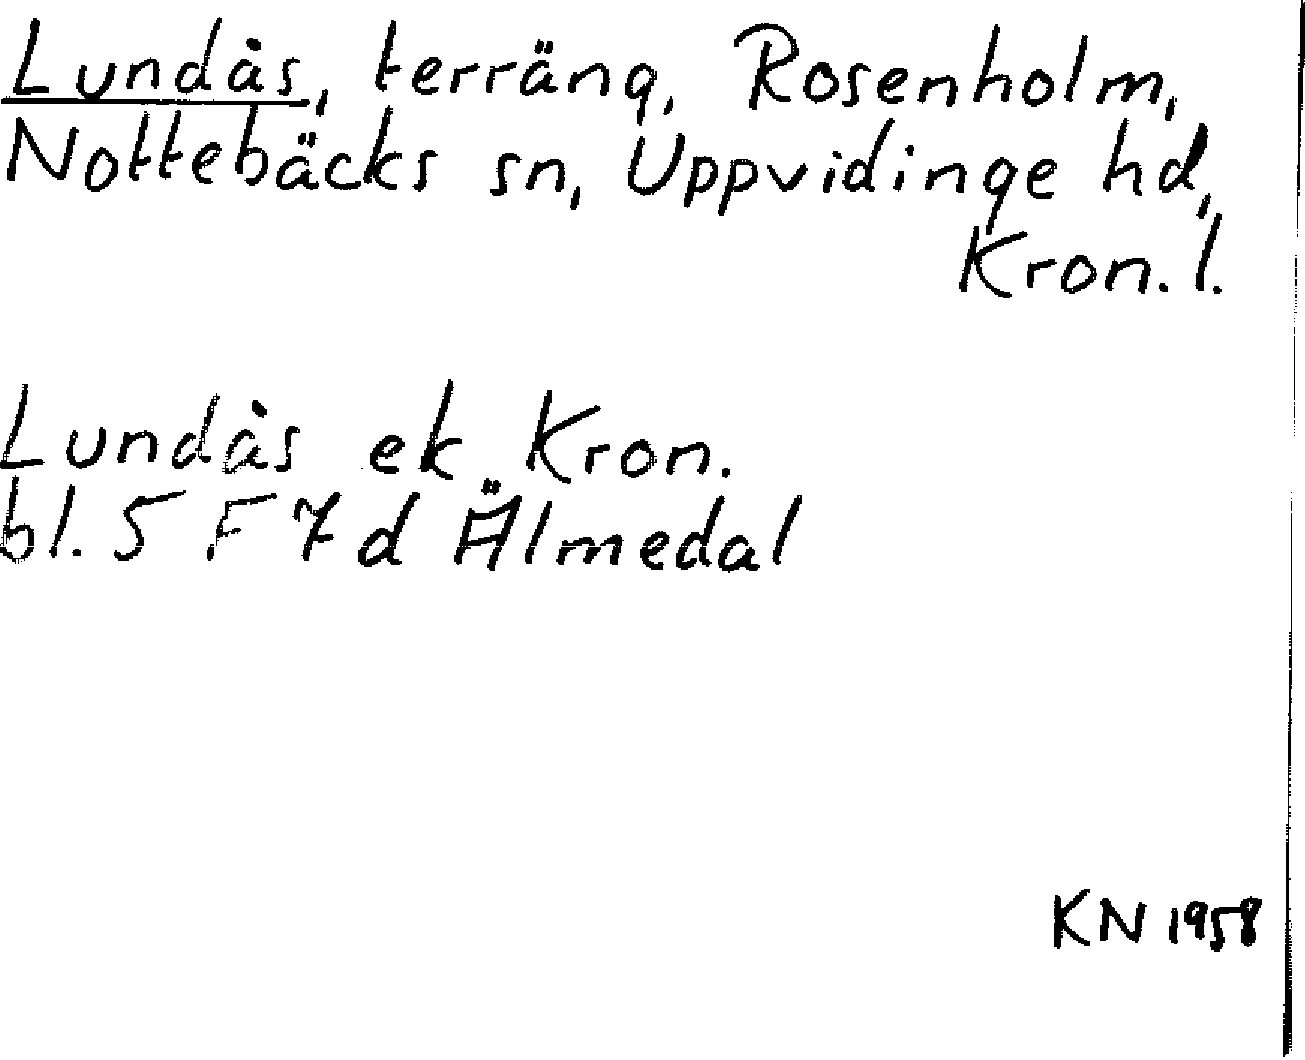 Lundås, terräng, Rosenholm,
Nottebäcks sn, Uppvidinge hd,
Kron. l.
Lundås ek Kron.
bl. 5 F 7 d Älmedal
KN 1958